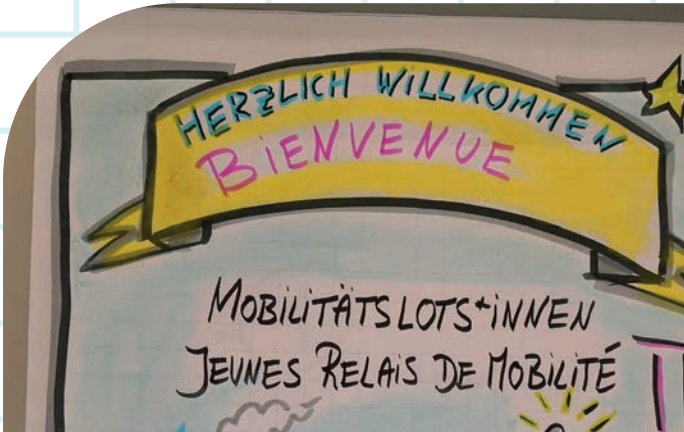 HERZLICH WILLKOMMEN
BIENVENUE
MOBILITÄTSLOTS*INNEN
JEUNES RELAIS DE MOBILITÉ